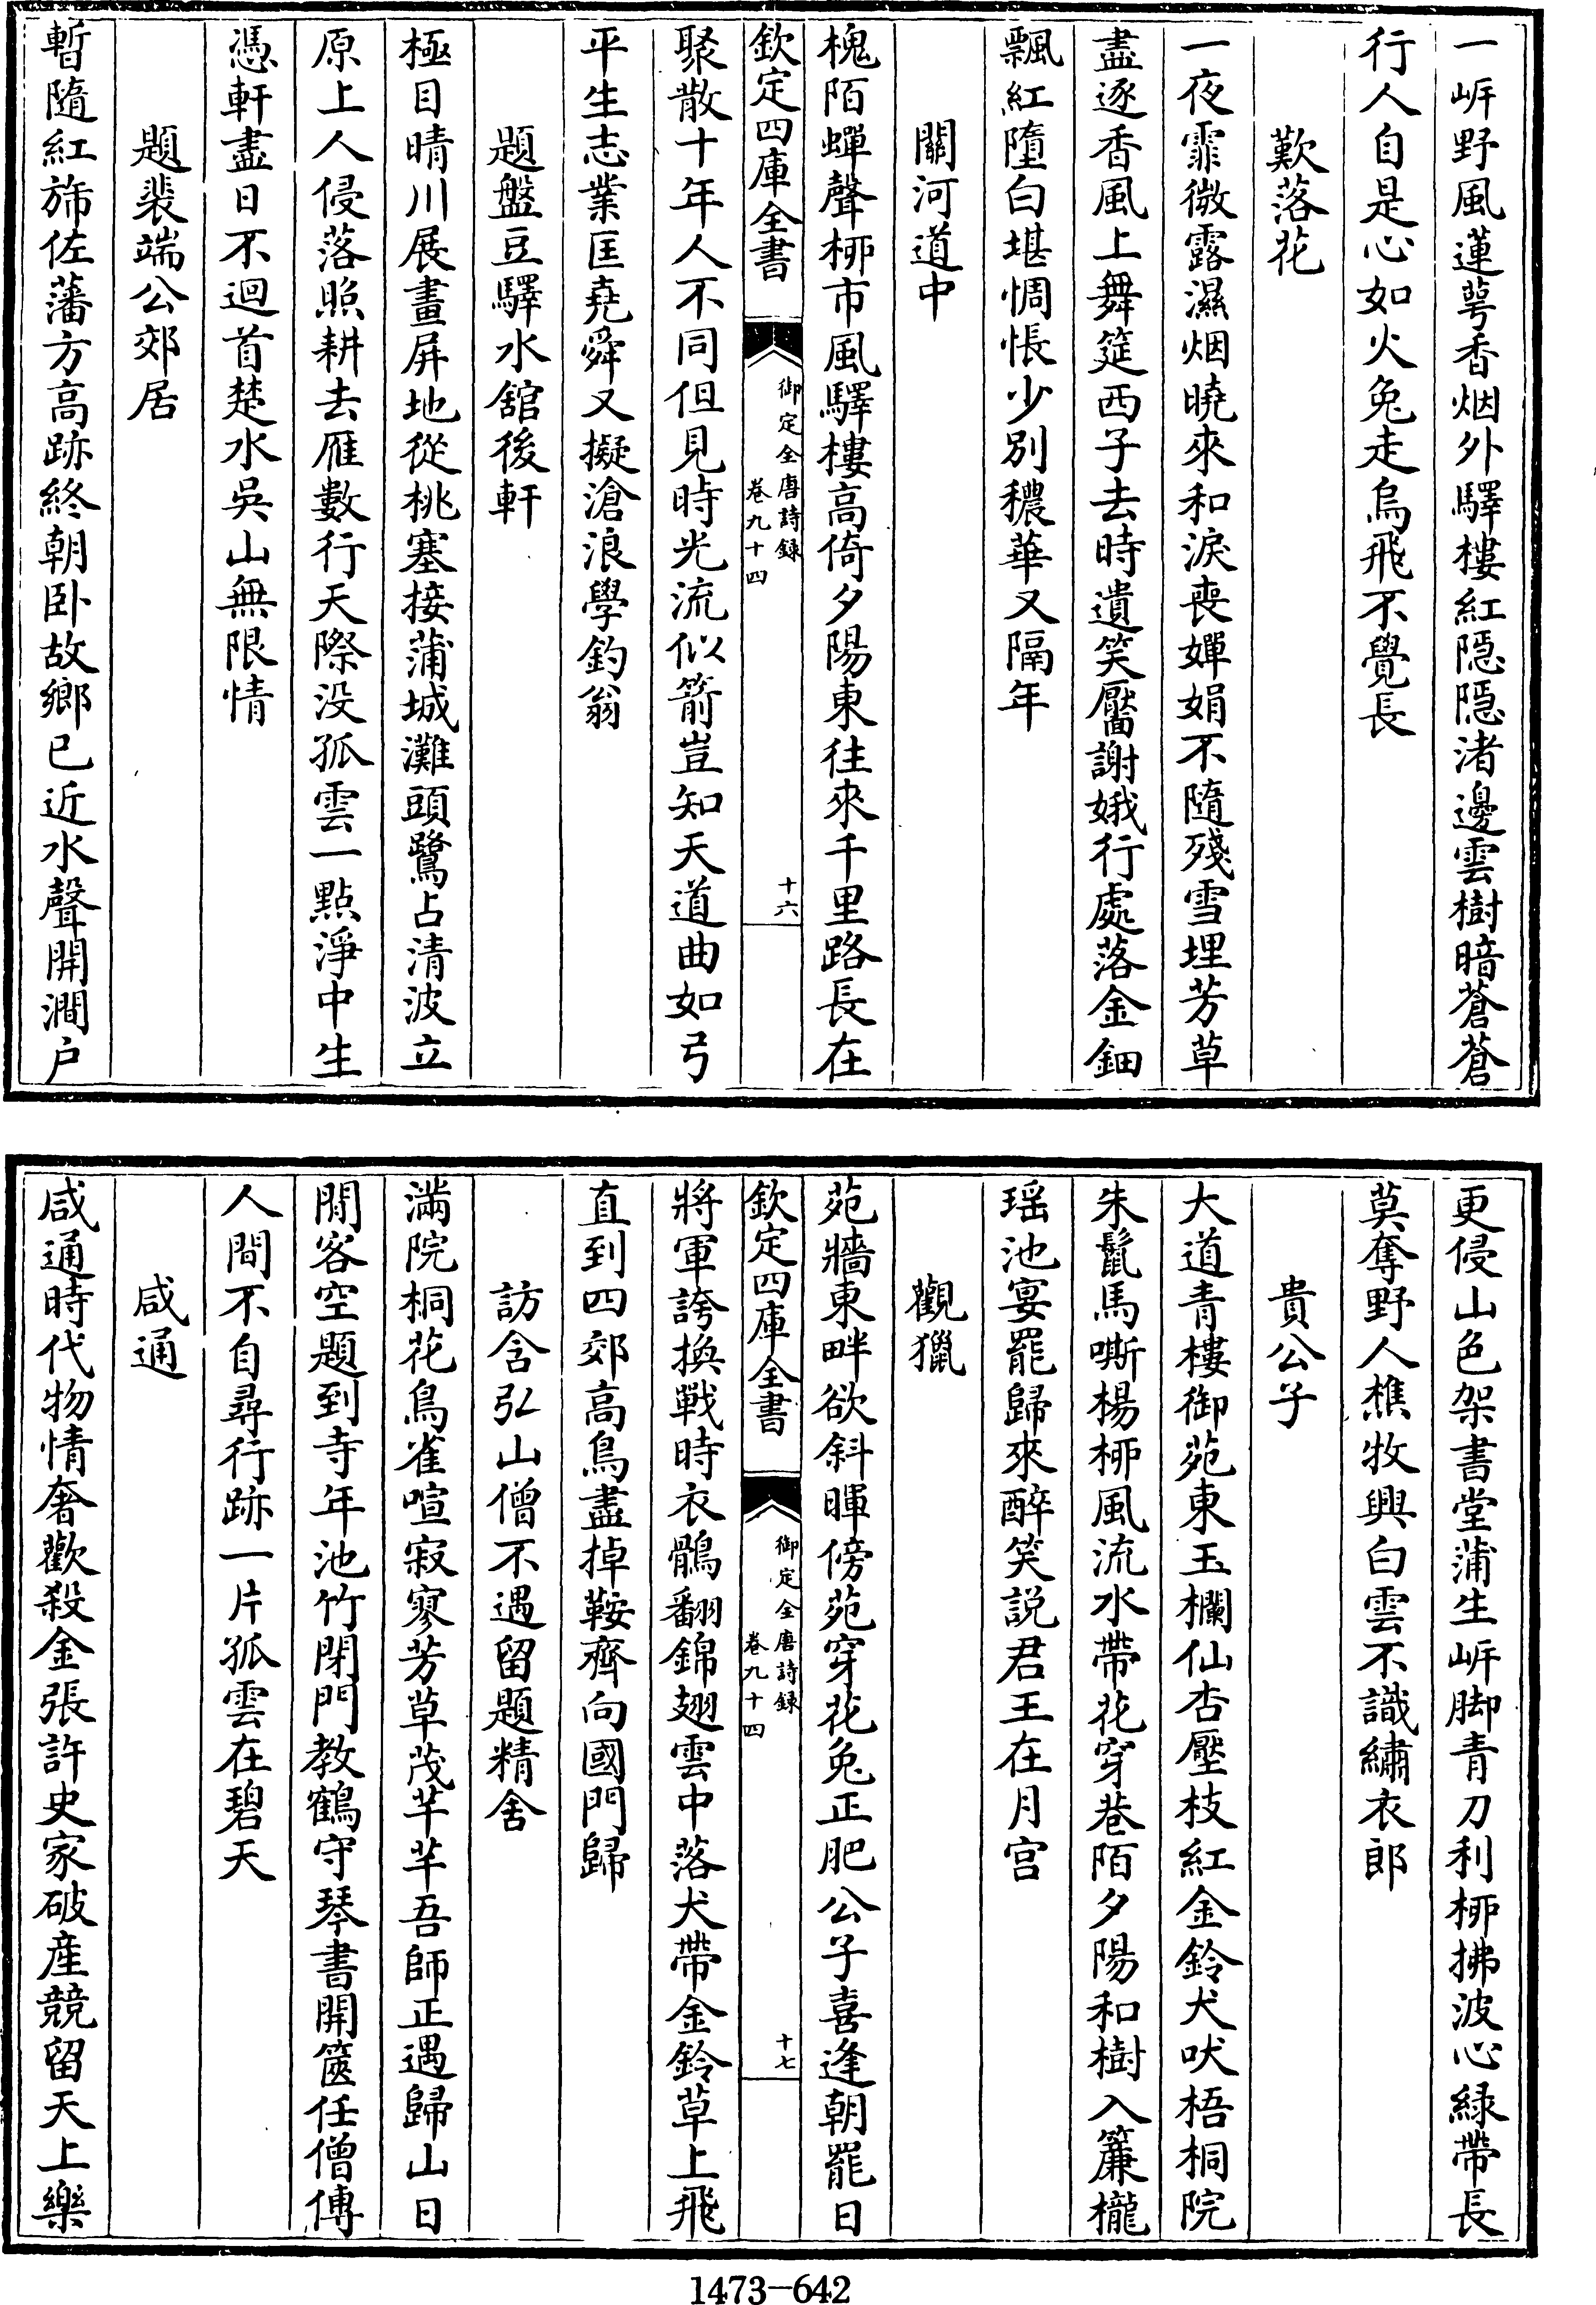 一岸野風蓮萼香烟外驛樓紅隱隱渚邊雲樹暗蒼蒼
行人自是心如火兔走烏飛不覺長
歎落花
一夜霏微露濕烟曉來和淚喪嬋娟不隨殘雪埋芳草
盡逐香風上舞筵西子去時遺笑靨謝娥行處落金鈿
飄紅墮白堪惆悵少別穠華又隔年
關河道中
槐陌蟬聲柳市風驛樓高倚夕陽東往來千里路長在
欽定四庫全書
御定全唐詩録
卷九十四
十六
聚散十年人不同但見時光流似箭豈知天道曲如弓
平生志業匡堯舜又擬滄浪學釣翁
題盤豆驛水舘後軒
極目晴川展畫屏地從桃塞接蒲城灘頭鷺占清波立
原上人侵落照耕去雁數行天際没孤雲一點淨中生
憑軒盡日不迴首楚水吳山無限情
題裴端公郊居
暫隨紅斾佐藩方高跡終朝卧故鄉已近水聲開澗户
更侵山色架書堂蒲生岸脚青刀利柳拂波心緑帶長
莫奪野人樵牧興白雲不識繡衣郎
貴公子
大道青樓御苑東玉欄仙杏壓枝紅金鈴犬吠梧桐院
朱鬛馬嘶楊柳風流水帶花穿巷陌夕陽和樹入簾櫳
瑶池宴罷歸來醉笑説君王在月宫
觀獵
苑牆東畔欲斜暉傍苑穿花兔正肥公子喜逢朝罷日
欽定四庫全書
御定全唐詩録
卷九十四
十七
將軍誇換戰時衣鶻翻錦翅雲中落犬帶金鈴草上飛
直到四郊高鳥盡掉鞍齊向國門歸
訪含弘山僧不遇留題精舍
滿院桐花鳥雀喧寂寥芳草茂芊芊吾師正遇歸山日
閒客空題到寺年池竹閉門教鶴守琴書開篋任僧傳
人間不自尋行跡一片孤雲在碧天
咸通
咸通時代物情奢歡殺金張許史家破産競留天上樂
1473-642